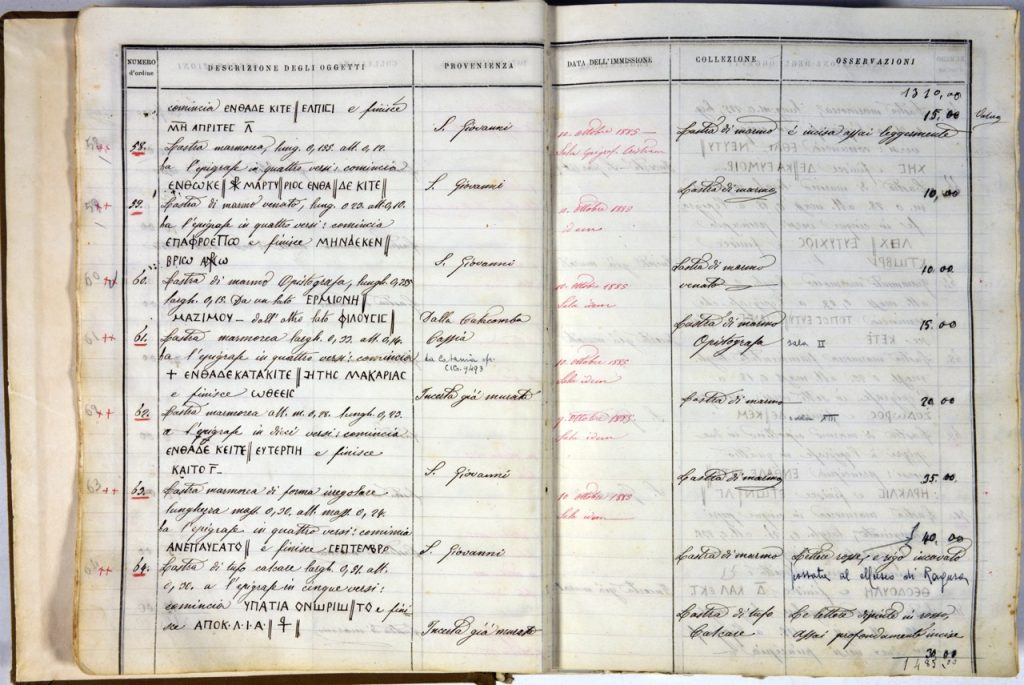 NUMERO d'ordine DESCRIZIONE DEGLI OGGETTI PROVENIENZA DATA DELL'IMMISSIONE COLLEZIONE OSSERVAZIONI
1310,00
comincia ΕΝΘΑΔΕ ΚΙΤΕ || ΕΛΠΙCΙ e finisce 15,00
ΜΗ ΑΠΡΙΤΕC Λ S. Giovanni 10. ottobre 1885 Lastra di marmo è incisa assai leggermente
58. Lastra marmorea, lung. 0,155. alt. 0,12. Sala Epigraf. Cristiane
ha l'epigrafe in quattro versi: comincia
ΕΝΘΩΚΕ || ΜΑΡΤΥ || ΡΙΟC ΕΝΘΑ || ΔΕ ΚΙΤΕ || S. Giovanni Lastra di marmo 10,00
59. Lastra di marmo venato, lung. 0.23. alt. 0,10. 10. ottobre 1885
ha l'epigrafe in quattro versi: comincia idem
ΕΠΑΦΡΟΕΠΟΟ e finisce ΜΗΝΔΕΚΕΝ ||
ΒΡΙω S. Giovanni Lastra di marmo 10.00
60. Lastra di marmo Opistografa, lungh. 0,255 10. ottobre 1885 venato
largh. 0,15. Da un lato ΕΡΜΙΟΝΗ || Sala idem
ΜΑΖΙΜΟΥ — dall'altro lato ΦΙΛΟΥCΙC || Dalla Catacomba Lastra di marmo 15.00
61. Lastra marmorea largh. 0,33. alt. 0,14. Cassia Opistografa sala II
ha l'epigrafe in quattro versi: comincia 10. ottobre 1885
+ ΕΝΘΑΔΕ ΚΑΤΑΚΙΤΕ || ΤΗC ΜΑΚΑΡΙΑC CIG. 9483 Sala idem
e finisce ωΘΕΕΙC Incerta già murata Lastra di marmo 20.00
62. Lastra marmorea alt. m. 0,28. lungh. 0,23. 9. ottobre 1885
a l'epigrafe in dieci versi: comincia Sala idem
ΕΝΘΑΔΕ ΚΕΙΤΕ || ΕΥΤΕΡΠΗ e finisce
ΚΑΙΤΟ Γ S. Giovanni Lastra di marmo 35.00
63. Lastra marmorea di forma irregolare 10 ottobre 1885
lunghezza mass. 0,30. alt. mass. 0,24. Sala idem
ha l'epigrafe in quattro versi: comincia 40.00
ΑΝΕΠΑΥCΑΤΟ || e finisce CΕΠΤΕΜΒΡω S. Giovanni Lastra di marmo Lettere rosse, e rigo incavato
64. Lastra di tufo calcare largh. 0,31. alt. al Museo di Ragusa
0,20. a l'epigrafe in cinque versi:
comincia ΥΠΑΤΙΑ ΟΝωΡΙω || ΤΟ e fini- Lastra di tufo Le lettere dipinte in rosso,
sce ΑΠΟΚ.Λ.Ι.Α || Incerta già murata Calcare Assai profondamente incise
30.00
1485.00